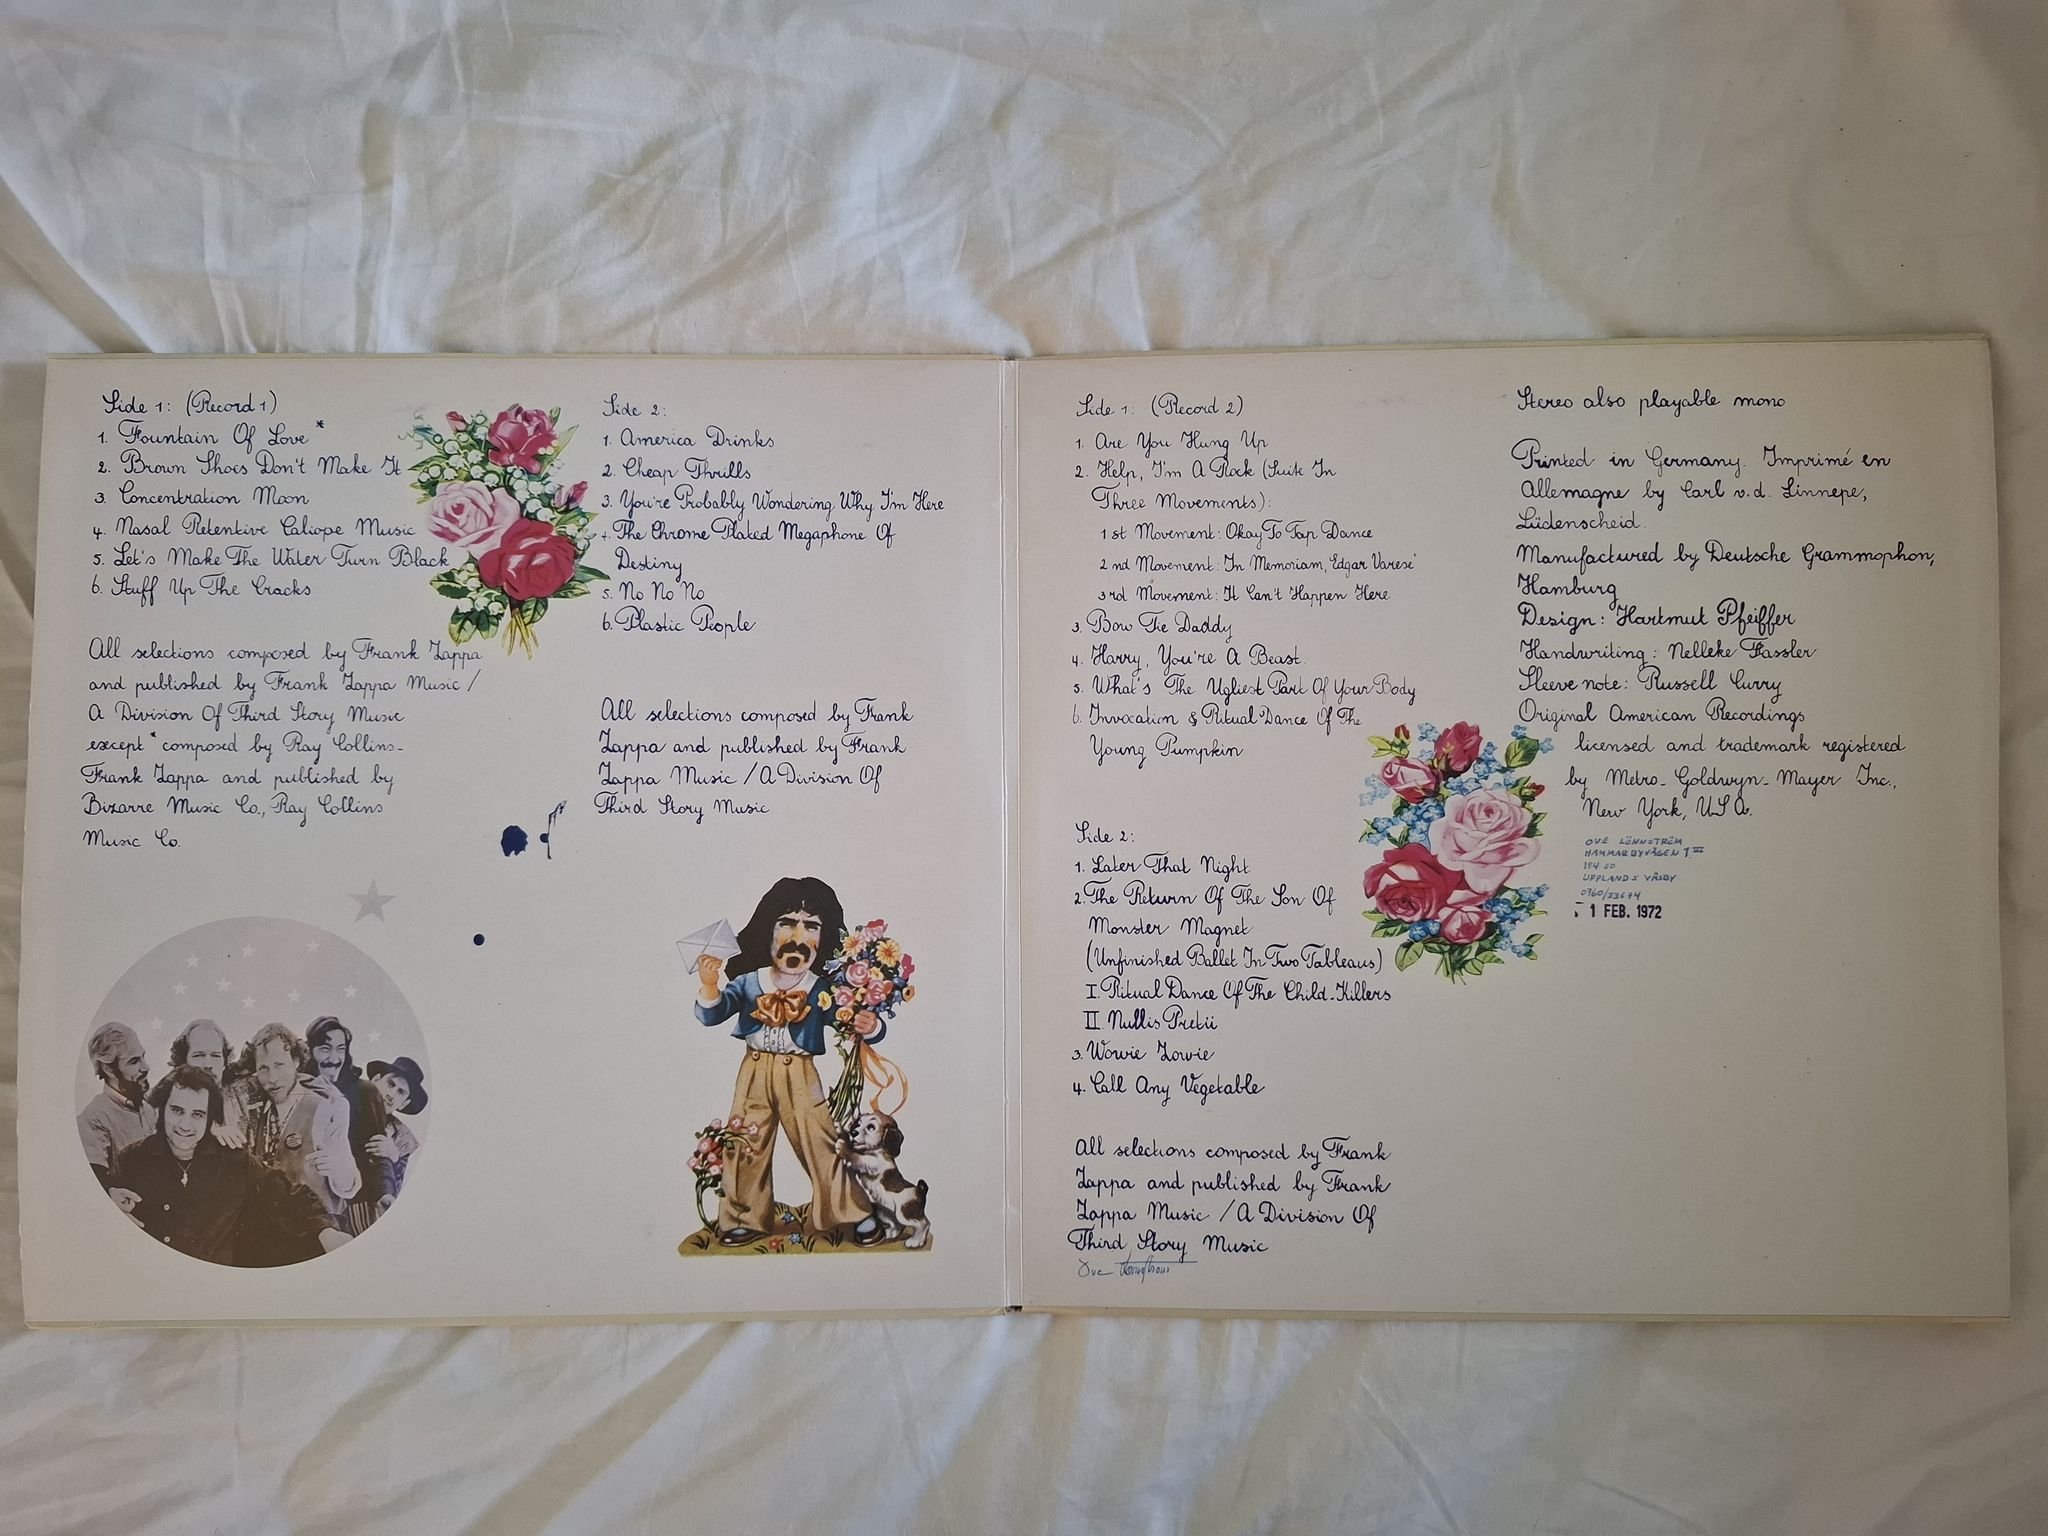 Side 1: (Record 1)
1. Fountain Of Love *
2. Brown Shoes Don't Make It
3. Concentration Moon
4. Nasal Retentive Caliope Music
5. Let's Make The Water Turn Black
6. Stuff Up The Cracks
All selections composed by Frank Zappa
and published by Frank Zappa Music /
A Division Of Third Story Music
except * composed by Ray Collins-
Frank Zappa and published by
Bizarre Music Co., Ray Collins
Music Co.
Side 2:
1. America Drinks
2. Cheap Thrills
3. You're Probably Wondering Why I'm Here
4. The Chrome Plated Megaphone Of
Destiny
5. No No No
6. Plastic People
All selections composed by Frank
Zappa and published by Frank
Zappa Music / A Division Of
Third Story Music
Side 1: (Record 2)
1. Are You Hung Up
2. Help, I'm A Rock (Suite In
Three Movements):
1st Movement: Okay To Tap Dance
2nd Movement: In Memoriam, Edgar Varese'
3rd Movement: It Can't Happen Here
3. Bow Tie Daddy
4. Harry, You're A Beast.
5. What's The Ugliest Part Of Your Body
6. Invocation & Ritual Dance Of The
Young Pumpkin
Side 2:
1. Later That Night
2. The Return Of The Son Of
Monster Magnet
(Unfinished Ballet In Two Tableaus)
I. Ritual Dance Of The Child-Killers
II. Nullis Pretii
3. Wowie Zowie
4. Call Any Vegetable
All selections composed by Frank
Zappa and published by Frank
Zappa Music / A Division Of
Third Story Music
Ove Lönnström
Stereo also playable mono
Printed in Germany. Imprimé en
Allemagne by Carl v.d. Linnepe,
Lüdenscheid.
Manufactured by Deutsche Grammophon,
Hamburg
Design: Hartmut Pfeiffer
Handwriting: Nelleke Fassler
Sleeve note: Russell Curry
Original American Recordings
licensed and trademark registered
by Metro-Goldwyn-Mayer Inc.,
New York, USA.
OVE LÖNNSTRÖM
HAMMARBYVÄGEN 7 III
194 00
UPPLANDS VÄSBY
0760/33674
1 FEB. 1972